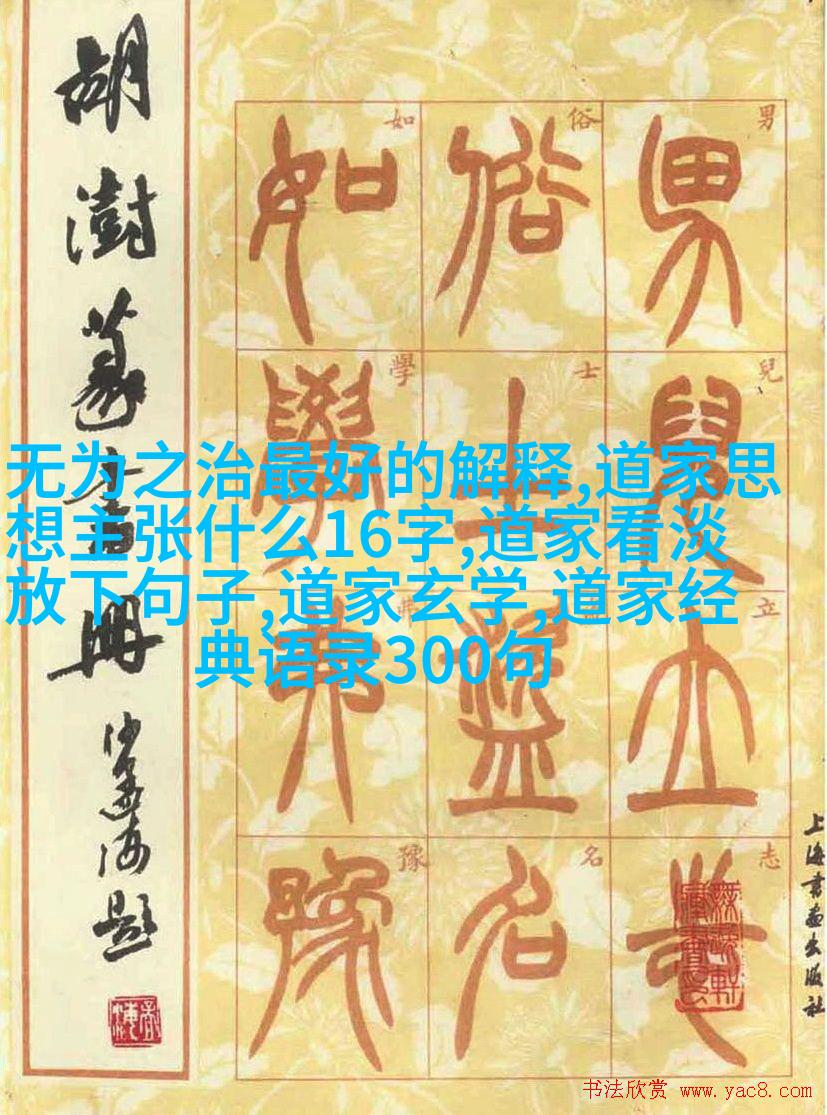 胡澍篆书冊
沙孟海題
无为之治最好的解释,道家思
想主张什么16字,道家看淡
放下句子,道家玄学,道家经
典语录300句
男兒立志
俗士盜名
如學弗豫
男
兒
立
志
俗
士
名
如
學
弗
豫
上海书画出版社
书法欣赏 www.yac8.com